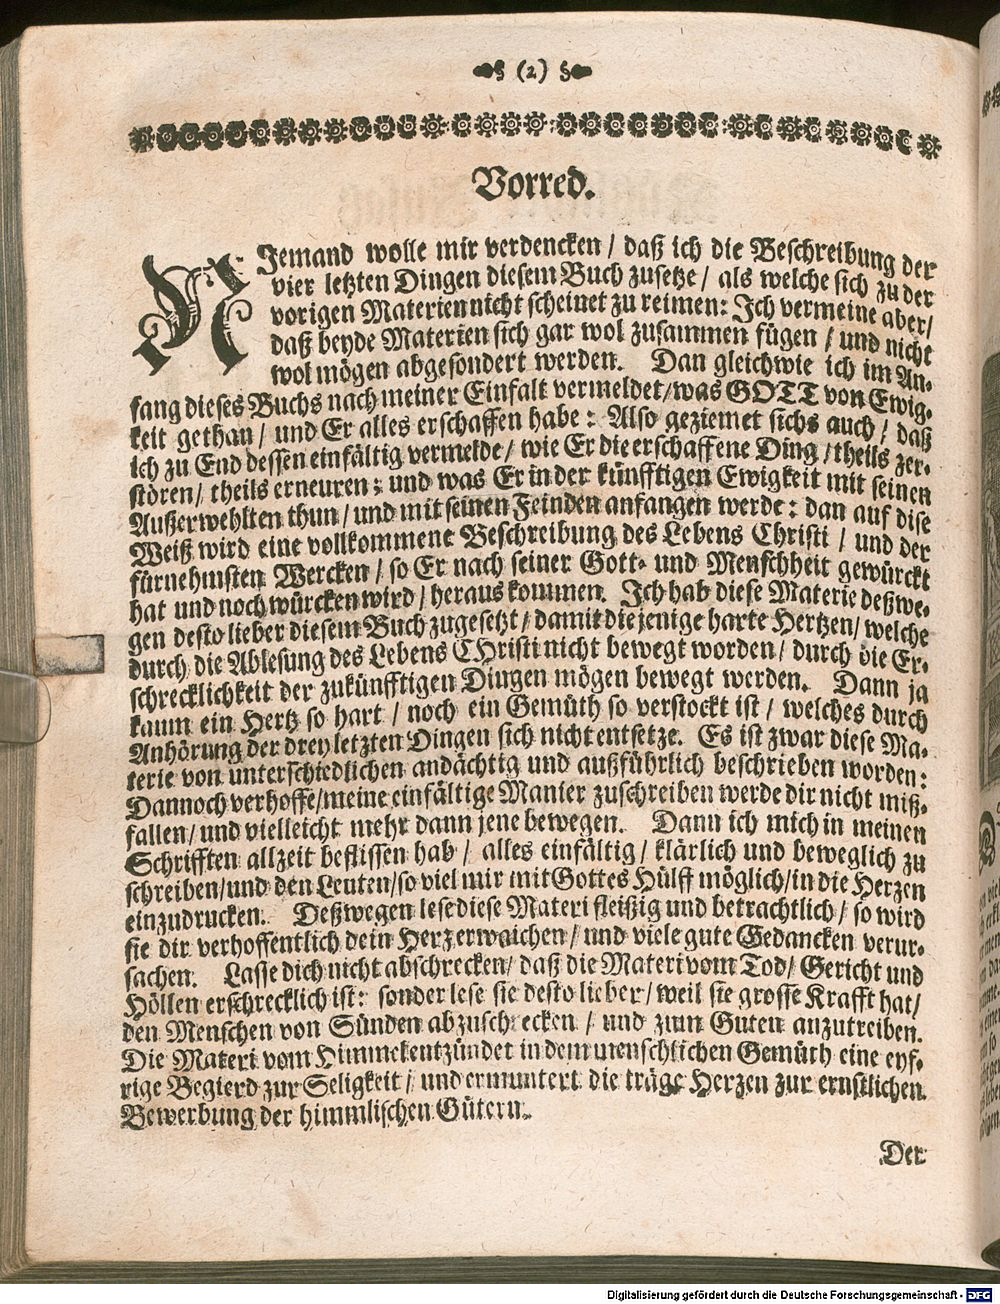 (2)
Vorred.
NJemand wolle mir verdencken / daß ich die Beschreibung der
vier letzten Dingen diesem Buch zusetze / als welche sich zu der
vorigen Materien nicht scheinet zu reimen: Jch vermeine aber /
daß beyde Materien sich gar wol zusammen fügen / und nicht
wol mögen abgesondert werden. Dan gleichwie ich im An-
fang dieses Buchs nach meiner Einfalt vermeldet / was GOTT von Ewig-
keit gethan / und Er alles erschaffen habe: Also geziemet sichs auch / daß
ich zu End dessen einfältig vermelde / wie Er die erschaffene Ding / theils zer-
stören / theils erneuren: und was Er in der künfftigen Ewigkeit mit seinen
Außerwehlten thun / und mit seinen Feinden anfangen werde: dan auf dise
Weiß wird eine vollkommene Beschreibung des Lebens Christi / und der
fürnehmsten Wercken / so Er nach seiner Gott- und Menschheit gewürckt
hat und noch würcken wird / heraus kommen. Jch hab diese Materie deßwe-
gen desto lieber diesem Buch zugesetzt / damit die jenige harte Hertzen / welche
durch die Ablesung des Lebens CHristi nicht bewegt worden / durch die Er-
schrecklichkeit der zukünfftigen Dingen mögen bewegt werden. Dann ja
kaum ein Hertz so hart / noch ein Gemüth so verstockt ist / welches durch
Anhörung der drey letzten Dingen sich nicht entsetze. Es ist zwar diese Ma-
terie von unterschiedlichen andächtig und außführlich beschrieben worden:
Dannoch verhoffe / meine einfältige Manier zuschreiben werde dir nicht miß-
fallen / und vielleicht mehr dann jene bewegen. Dann ich mich in meinen
Schrifften allzeit beflissen hab / alles einfältig / klärlich und beweglich zu
schreiben / und den Leuten / so viel mir mit Gottes Hülff möglich / in die Herzen
einzudrucken. Deßwegen lese diese Materi fleißig und betrachtlich / so wird
sie dir verhoffentlich dein Herz erwaichen / und viele gute Gedancken verur-
sachen. Lasse dich nicht abschrecken / daß die Materi vom Tod / Gericht und
Höllen erschrecklich ist: sonder lese sie desto lieber / weil sie grosse Krafft hat /
den Menschen von Sünden abzuschrecken / und zum Guten anzutreiben.
Die Materi vom Himmel entzündet in dem menschlichen Gemüth eine eyf-
rige Begierd zur Seligkeit / und ermuntert die träge Herzen zur ernstlichen
Bewerbung der himmlischen Gütern.
Der
Digitalisierung gefördert durch die Deutsche Forschungsgemeinschaft - DFG